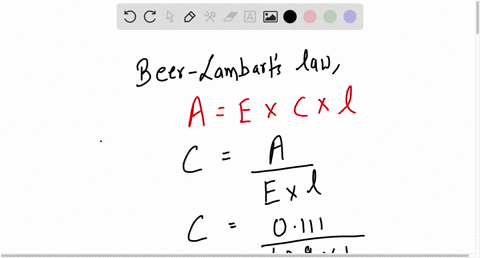 Beer-Lambart's law,
A = E x C x l
C = A / E x l
C = 0.111